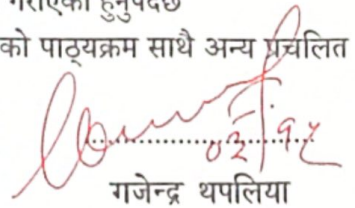 गराएको हुनुपर्दछ
को पाठ्यक्रम साथै अन्य प्रचलित
गजेन्द्र थपलिया